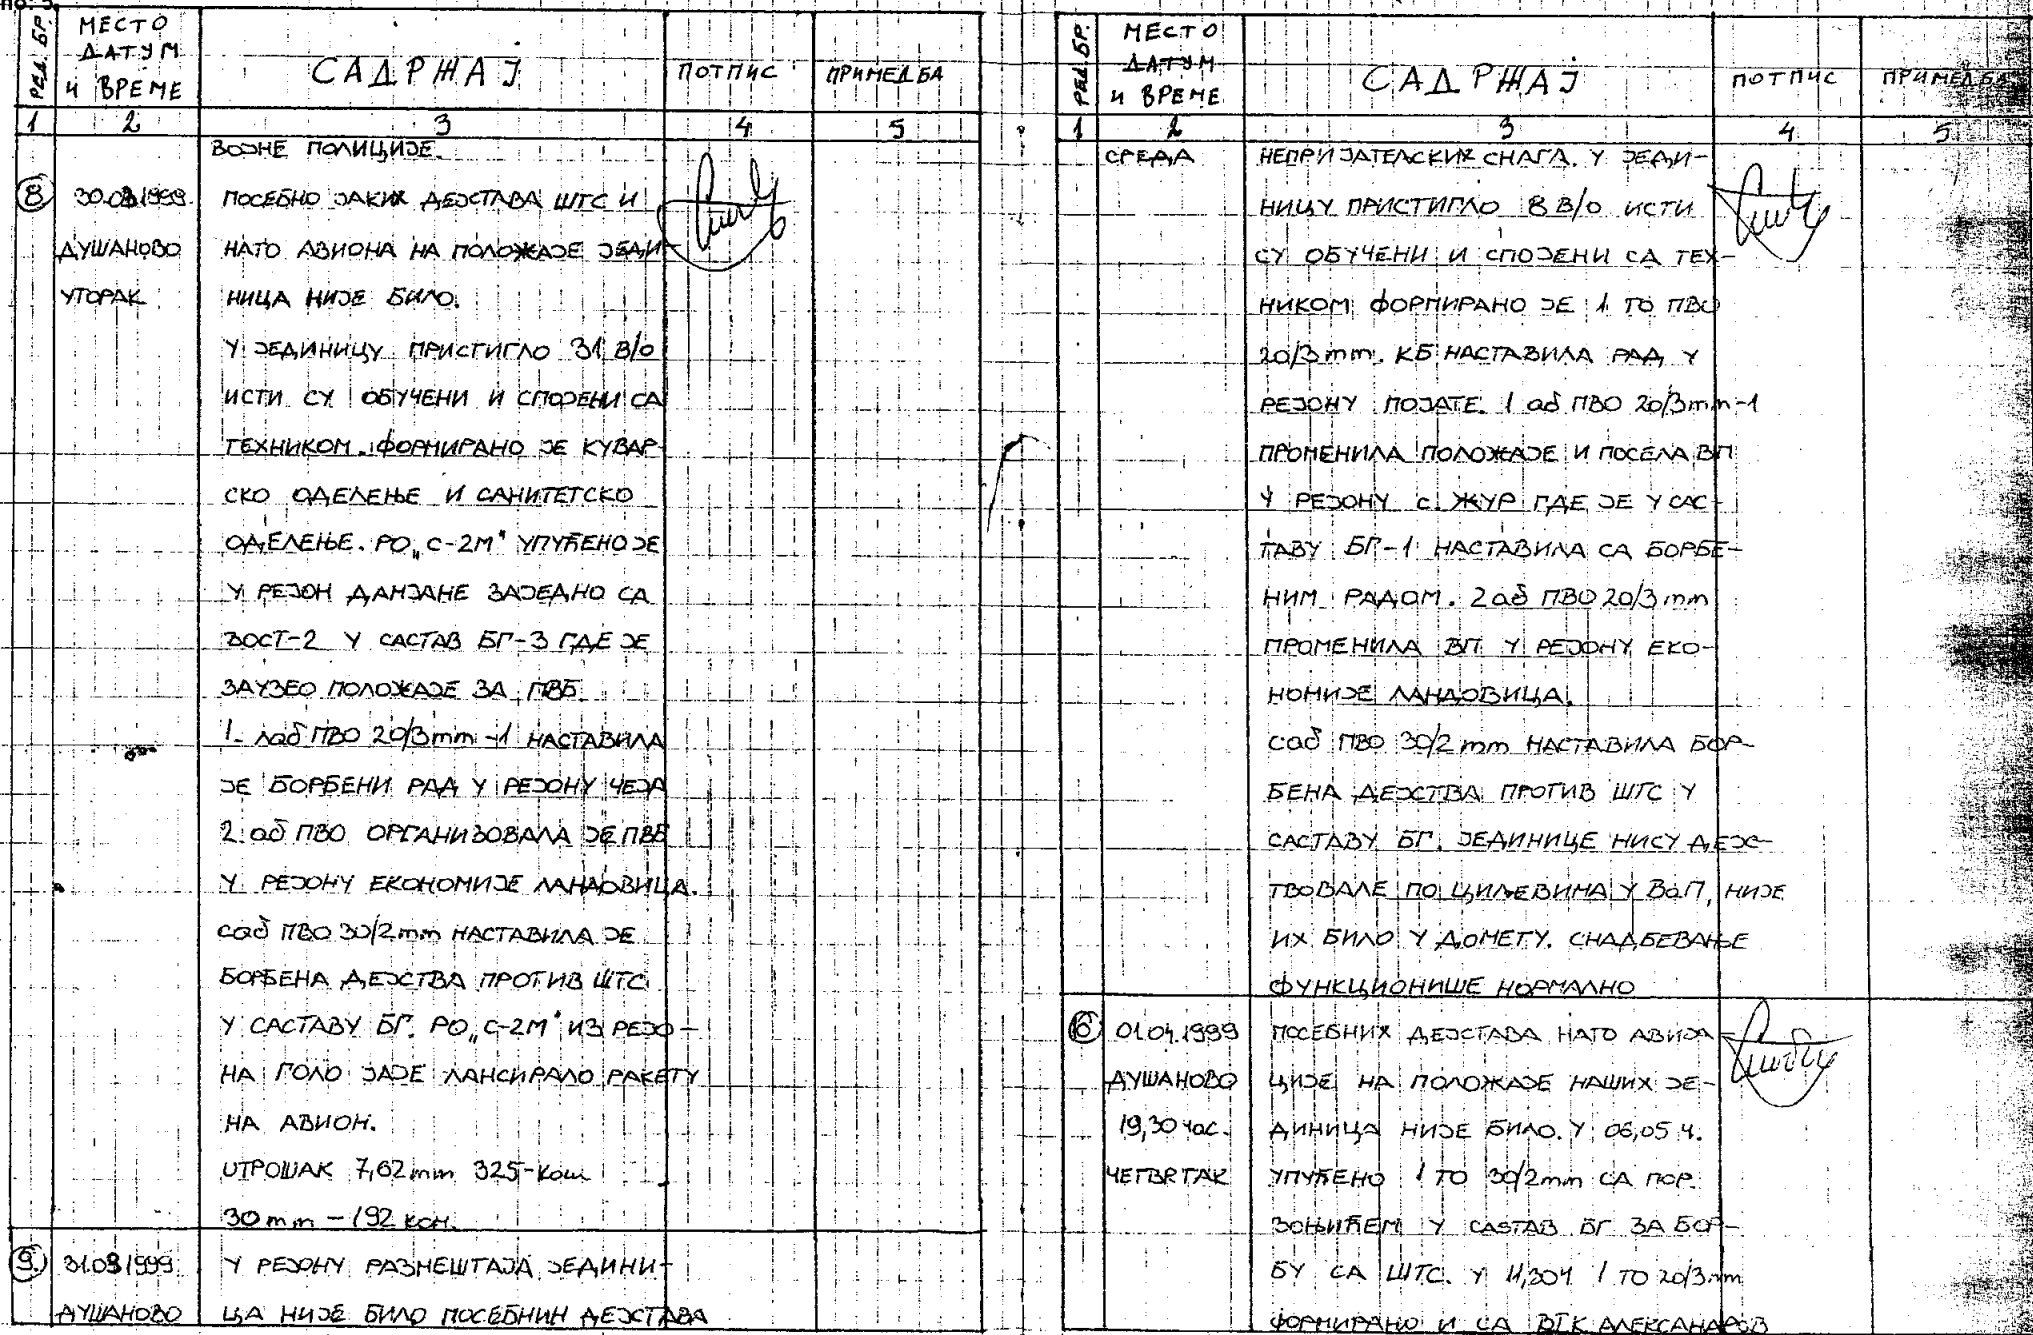 РЕД. БР.
МЕСТО
ДАТУМ
И ВРЕМЕ
САДРЖАЈ
ПОТПИС
ПРИМЕДБА
1 2 3 4 5
ВОЈНЕ ПОЛИЦИЈЕ.
8 30.03.1999 ПОСЕБНО ЈАКИХ ДЕЈСТАВА ШТС И
ДУШАНОВО НАТО АВИОНА НА ПОЛОЖАЈЕ ЈЕДИ-
УТОРАК НИЦА НИЈЕ БИЛО.
У ЈЕДИНИЦУ ПРИСТИГЛО 31 В/О
ИСТИ СУ ОБУЧЕНИ И СПОЈЕНИ СА
ТЕХНИКОМ. ФОРМИРАНО ЈЕ КУВАР-
СКО ОДЕЛЕЊЕ И САНИТЕТСКО
ОДЕЛЕЊЕ. РО „С-2М" УПУЋЕНО ЈЕ
У РЕЈОН ДАНЈАНЕ ЗАЈЕДНО СА
ВОСТ-2 У САСТАВ БГ-3 ГДЕ ЈЕ
ЗАУЗЕО ПОЛОЖАЈЕ ЗА ПВБ.
1. лаб ПВО 20/3mm-1 НАСТАВИЛА
ЈЕ БОРБЕНИ РАД У РЕЈОНУ ЧЕЈА
2. аб ПВО ОРГАНИЗОВАЛА ЈЕ ПВБ
У РЕЈОНУ ЕКОНОМИЈЕ ЛАНДОВИЦА.
саб ПВО 30/2mm НАСТАВИЛА ЈЕ
БОРБЕНА ДЕЈСТВА ПРОТИВ ШТС
У САСТАВУ БГ. РО „С-2М" ИЗ РЕЈО-
НА ГОЛО ЈАЈЕ ЛАНСИРАЛО РАКЕТУ
НА АВИОН.
УТРОШАК 7,62mm 325-ком
30mm - 192 ком.
9. 31.03.1999. У РЕЈОНУ РАЗМЕШТАЈА ЈЕДИНИ-
ДУШАНОВО ЦА НИЈЕ БИЛО ПОСЕБНИН ДЕЈСТАВА
РЕД. БР.
МЕСТО
ДАТУМ
И ВРЕМЕ
САДРЖАЈ
ПОТПИС
ПРИМЕДБА
1 2 3 4 5
СРЕДА НЕПРИЈАТЕЛСКИХ СНАГА. У ЈЕДИ-
НИЦУ ПРИСТИГЛО 8 В/О ИСТИ
СУ ОБУЧЕНИ И СПОЈЕНИ СА ТЕХ-
НИКОМ ФОРМИРАНО ЈЕ 1 ТО ПВО
20/3mm. КБ НАСТАВИЛА РАД У
РЕЈОНУ ПОЈАТЕ. 1 аб ПВО 20/3mm-1
ПРОМЕНИЛА ПОЛОЖАЈЕ И ПОСЕЛА ВП
У РЕЈОНУ с. ЖУР ГДЕ ЈЕ У САС-
ТАВУ БГ-1 НАСТАВИЛА СА БОРБЕ-
НИМ РАДОМ. 2 аб ПВО 20/3mm
ПРОМЕНИЛА ВП У РЕЈОНУ ЕКО-
НОМИЈЕ ЛАНДОВИЦА.
саб ПВО 30/2mm НАСТАВИЛА БОР-
БЕНА ДЕЈСТВА ПРОТИВ ШТС У
САСТАВУ БГ. ЈЕДИНИЦЕ НИСУ ДЕЈС-
ТВОВАЛЕ ПО ЦИЉЕВИМА У ВаП, НИЈЕ
ИХ БИЛО У ДОМЕТУ. СНАДБЕВАЊЕ
ФУНКЦИОНИШЕ НОРМАЛНО
10 01.04.1999 ПОСЕБНИХ ДЕЈСТАВА НАТО АВИЈА-
ДУШАНОВО ЦИЈЕ НА ПОЛОЖАЈЕ НАШИХ ЈЕ-
19,30 час. ДИНИЦА НИЈЕ БИЛО. У 06,05 Ч.
ЧЕТВРТАК УПУЋЕНО 1 ТО 30/2mm СА ПОР.
ЗОЊИЋЕМ У САСТАВ БГ ЗА БОР-
БУ СА ШТС. У 11,30Ч 1 ТО 20/3mm
ФОРМИРАНО И СА ВТК АЛЕКСАНДРОВ